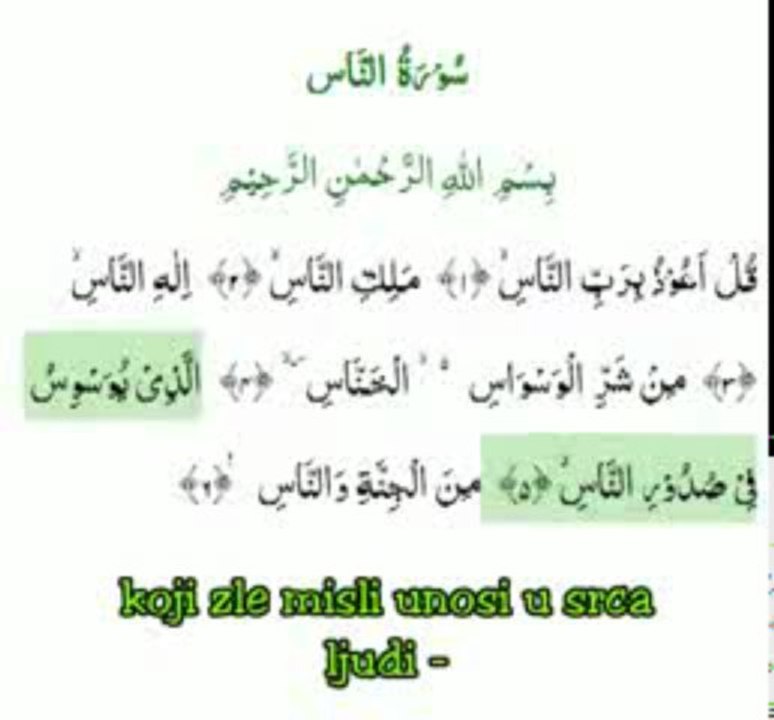 سُوْرَةُ النَّاس
بِسْمِ اللهِ الرَّحْمٰنِ الرَّحِيْمِ
قُلْ اَعُوْذُ بِرَبِّ النَّاسِۙ ﴿۱﴾ مَلِكِ النَّاسِۙ ﴿۲﴾ اِلٰهِ النَّاسِۙ
﴿۳﴾ مِنْ شَرِّ الْوَسْوَاسِ ۙ۬ الْخَنَّاسِ ۪ۙ ﴿۴﴾ الَّذِیْ یُوَسْوِسُ
فِیْ صُدُوْرِ النَّاسِۙ ﴿۵﴾ مِنَ الْجِنَّةِ وَ النَّاسِ ﴿۶﴾
koji zle misli unosi u srca
ljudi -